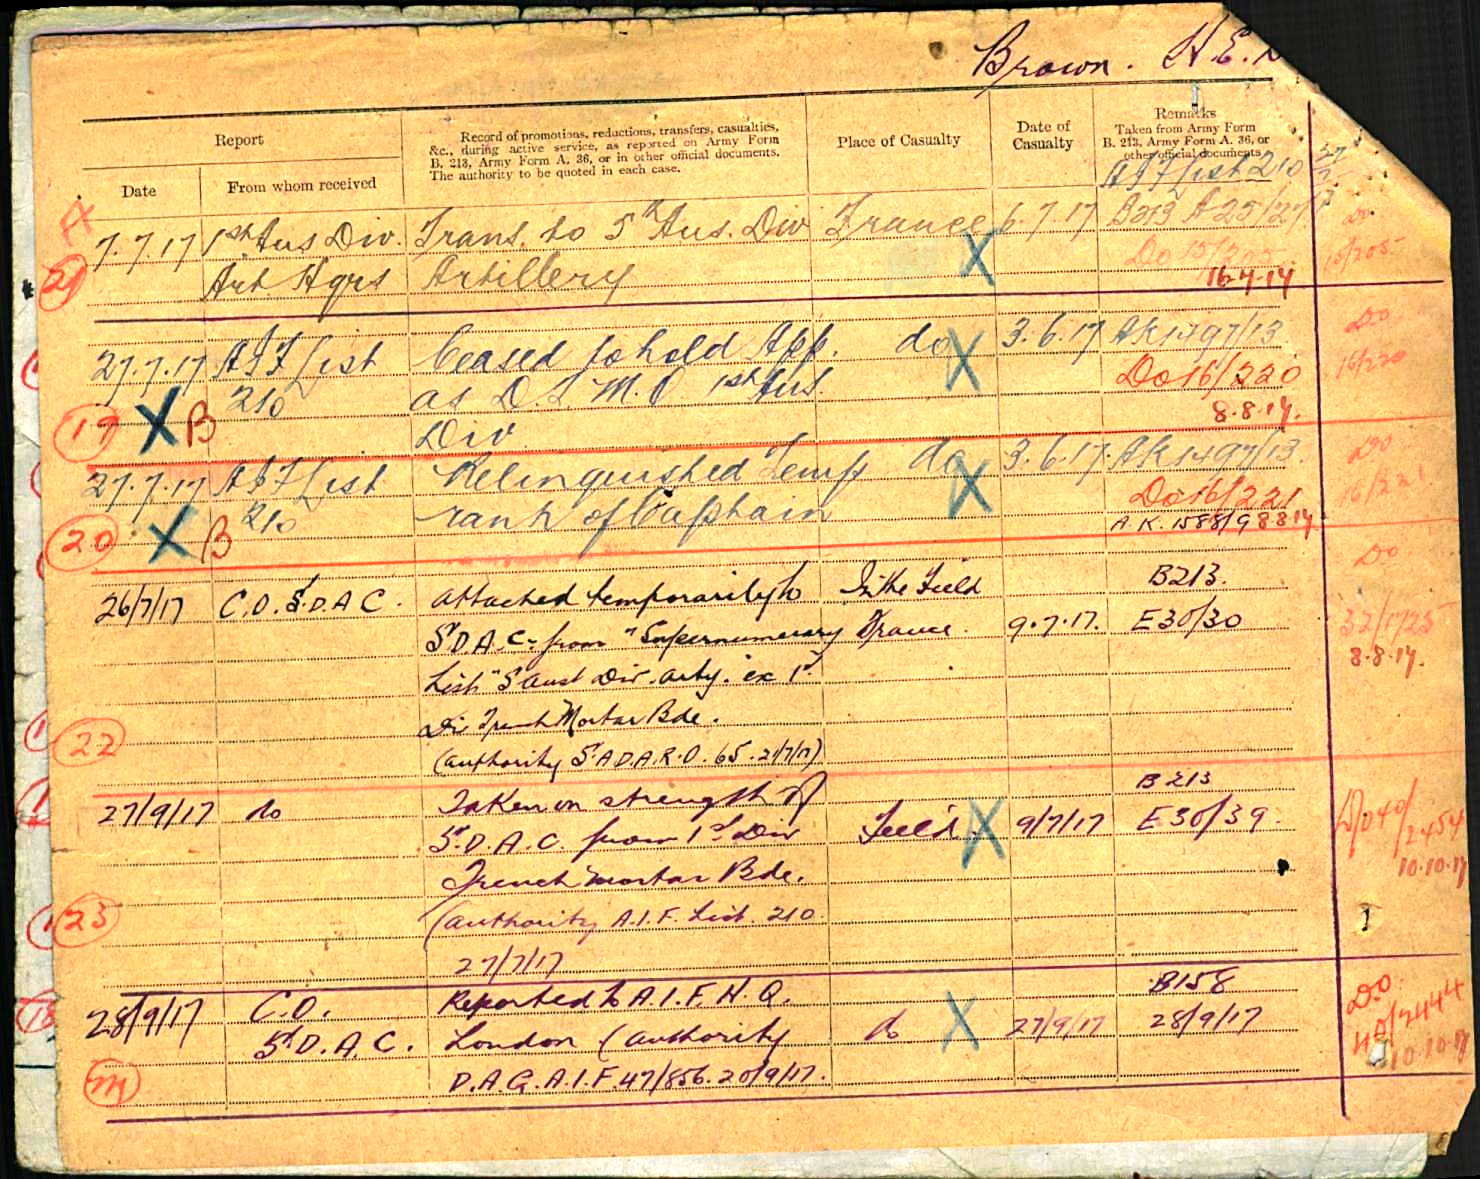 Brown. H.E.
Report
Record of promotions, reductions, transfers, casualties,
&c., during active service, as reported on Army Form
B. 213, Army Form A. 36, or in other official documents.
The authority to be quoted in each case.
Place of Casualty
Date of
Casualty
Remarks
Taken from Army Form
B. 213, Army Form A. 36, or
other official documents
Date
From whom received
AIF List 210
7.7.17 1st Aus Div. Trans. to 5th Aus. Div France 6.7.17 B213 A25/27
Art. Hqrs Artillery
21
16.7.17
27.7.17 AIF List Ceased to hold App. do 3.6.17 AK1497/13
210 as D.T.M.O. 1st Aus. Do 16/220
Div 8.8.17.
19 X B
27.7.17 AIF List Relinquished Temp do 3.6.17. AK1497/13.
210 rank of Captain Do 16/221
A.K. 1588/9 8 8 17
20 X B
Do
16/220
Do
16/221
Do
26/7/17 C.O. 5.D.A.C. Attached temporarily to In the Field B213.
5.D.A.C. from "Supernumerary France. 9.7.17. E30/30
List" 5 Aust Div. Arty. ex 1st
Div Trench Mortar Bde.
(authority 5.A.D.A.R.O. 65. 21/7/17)
22
8.8.17.
27/9/17 do Taken on strength of B213
5.D.A.C. from 1st Div Field X 9/7/17 E30/39.
Trench Mortar Bde.
(authority A.I.F. List. 210
27/7/17
23
10.10.17
28/9/17 C.O. Reported to A.I.F.H.Q. B158
5th D.A.C. London (authority do X 27/9/17 28/9/17
D.A.G. A.I.F. 47/856. 20/9/17.
D.O.
10.10.17